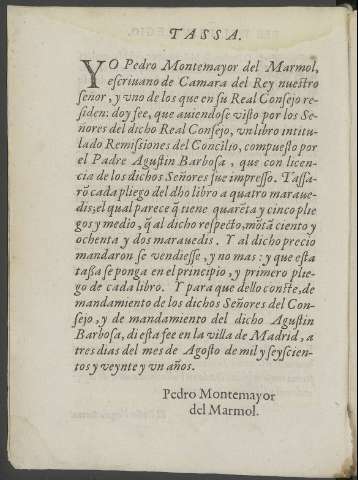 TASSA.
YO Pedro Montemayor del Marmol,
escriuano de Camara del Rey nuestro
señor, y vno de los que en su Real Consejo re-
siden: doy fee, que auiendose visto por los Se-
ñores del dicho Real Consejo, vn libro intitu-
lado Remissiones del Concilio, compuesto por
el Padre Agustin Barbosa, que con licen-
cia de los dichos Señores fue impresso. Tassa-
rõ cada pliego del dho libro a quatro maraue-
dis; el qual parece q̃ tiene quarẽta y cinco plie
gos y medio, q̃ al dicho respecto, mõtã ciento y
ochenta y dos marauedis. Y al dicho precio
mandaron se vendiesse, y no mas: y que esta
tassa se ponga en el principio, y primero plie-
go de cada libro. Y para que dello conste, de
mandamiento de los dichos Señores del Con-
sejo, y de mandamiento del dicho Agustin
Barbosa, di esta fee en la villa de Madrid, a
tres dias del mes de Agosto de mil y seyscien-
tos y veynte y vn años.
Pedro Montemayor
del Marmol.